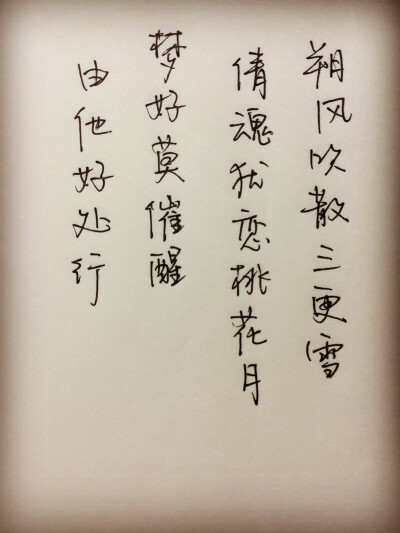 朔风吹散三更雪
倩魂犹恋桃花月
梦好莫催醒
由他好处行